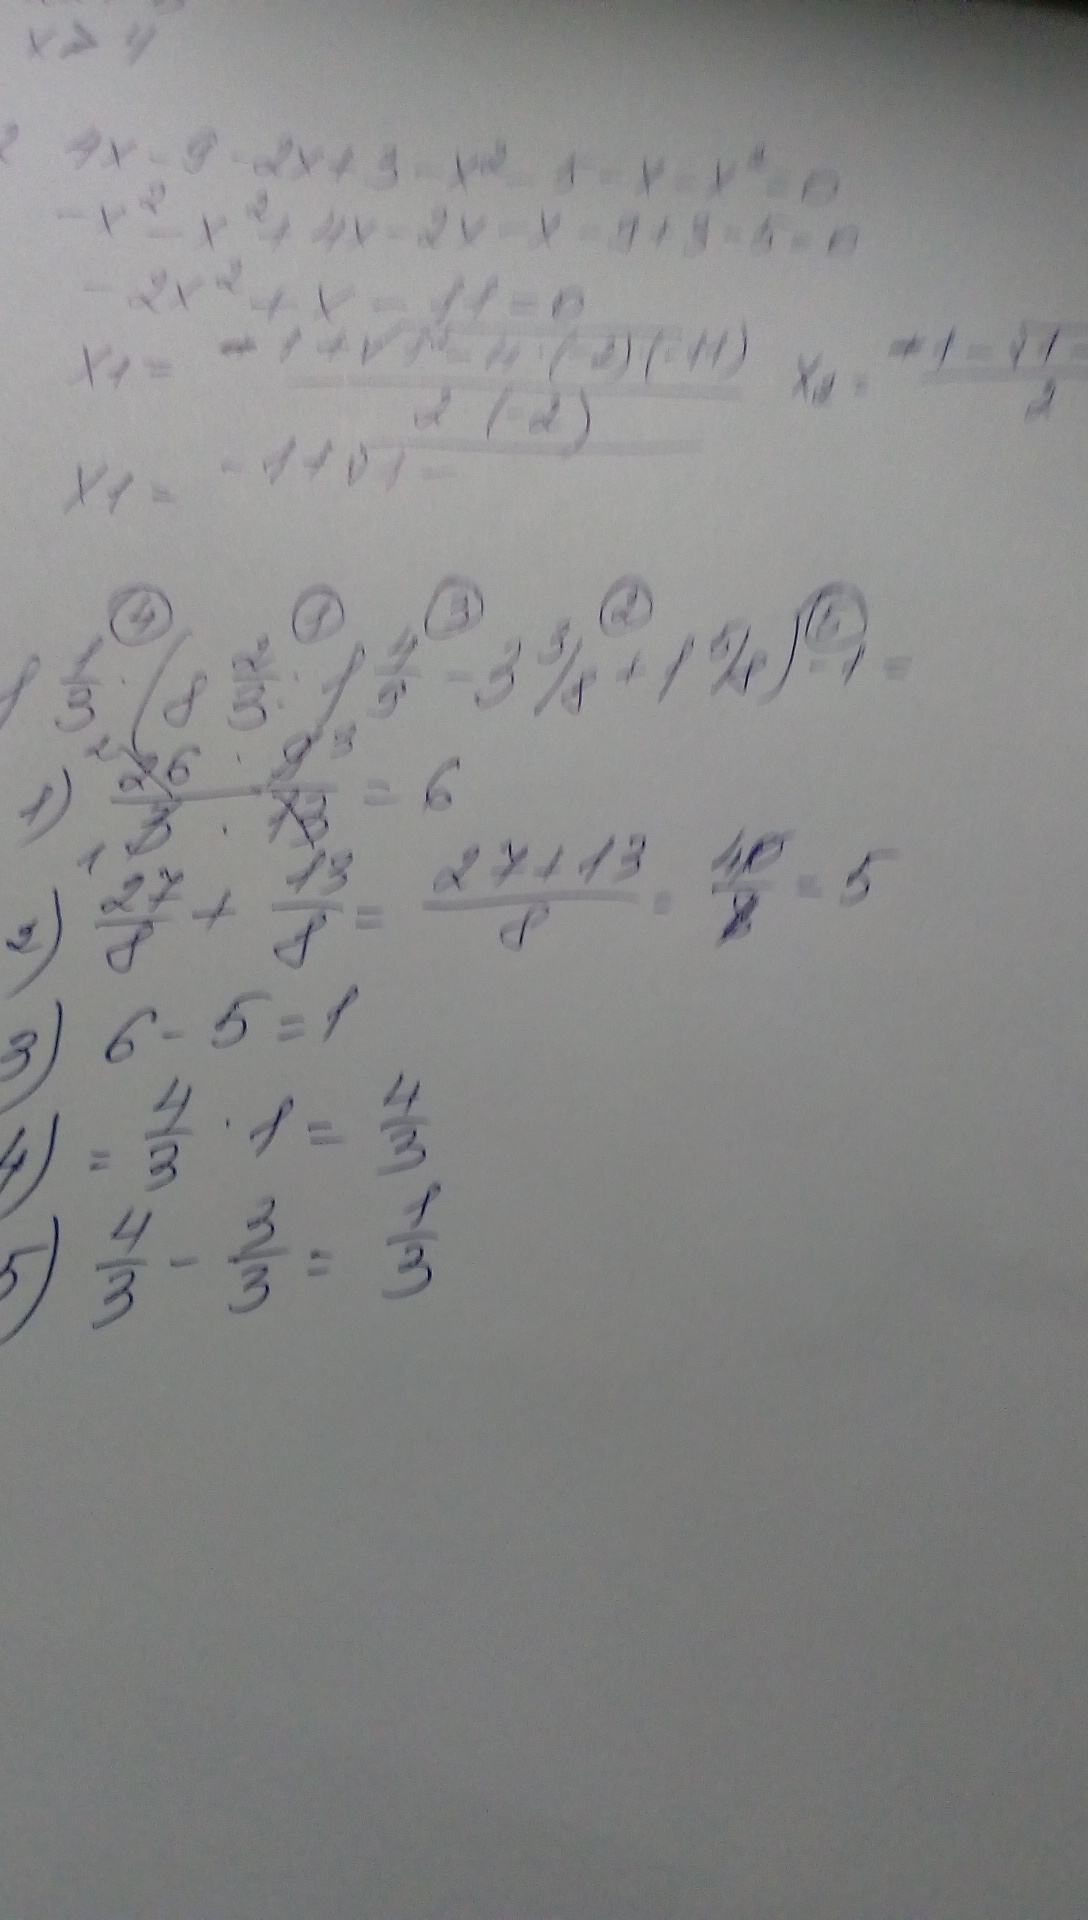 x > 4
4x - 9 - 2x + 9 - x² - 5 - x - x² = 0
-x² - x² + 4x - 2x - x - 9 + 9 - 5 = 0
-2x² + x - 11 = 0
x1 = -1+√1²-4·(-2)(-11) / 2·(-2) x2 = -1-√1- / 2
x1 = -1+√1-
④ ① ③ ②
1 1/3 · (8 2/3 : 1 4/9 - 3 3/8 + 1 5/8) - 1 =
1) 26/3 · 9/13 = 6
2) 27/8 + 13/8 = 27+13/8 = 40/8 = 5
3) 6 - 5 = 1
4) = 4/3 · 1 = 4/3
5) 4/3 - 3/3 = 1/3